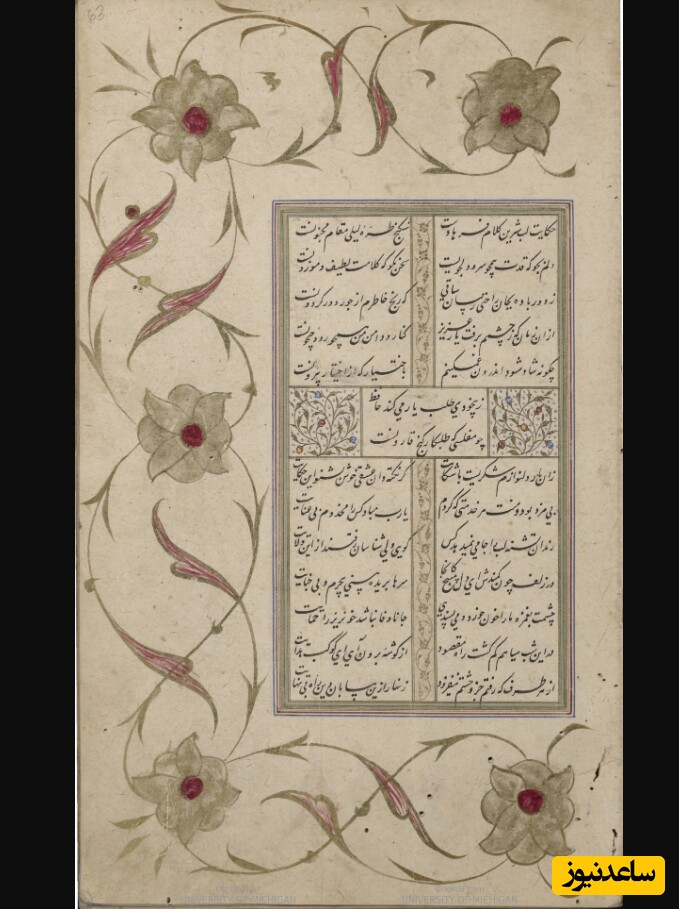 63
حکایت لب شیرین کلام فرهادست شکنج طره لیلی مقام مجنونست
دلم بجو که قدت همچو سرو دلجویست سخن بگو که کلامت لطیف و موزونست
ز دور باده بجان راحتی رسان ساقی که رنج خاطرم از جور دور گردونست
از آن زمان که ز چشمم برفت یار عزیز کنار دامن من همچو رود جیحونست
چگونه شاد شود اندرون غمگینم باختیار که از اختیار بیرونست
ز بیخودی طلب یار می کند حافظ
چو مفلسی که طلبکار گنج قارونست
زان یار دلنوازم شکریست با شکایت گر نکته دان عشقی خوش بشنو این حکایت
بی مزد بود و منت هر خدمتی که کردم یارب مباد کس را مخدوم بی عنایت
رندان تشنه لب را جامی نمیدهد کس گویی ولی شناسان رفتند ازین ولایت
در زلف چون کمندش ای دل مپیچ کانجا سرها بریده بینی بی جرم و بی جنایت
چشمت بغمزه ما را خون خورد و می پسندی جانا روا نباشد خونریز را حمایت
در این شب سیاهم گم گشت راه مقصود از گوشه برون آی ای کوکب هدایت
از هر طرف که رفتم جز وحشتم نیفزود زنهار ازین بیابان وین راه بی نهایت
UNIVERSITY OF MICHIGAN
ساعدنیوز